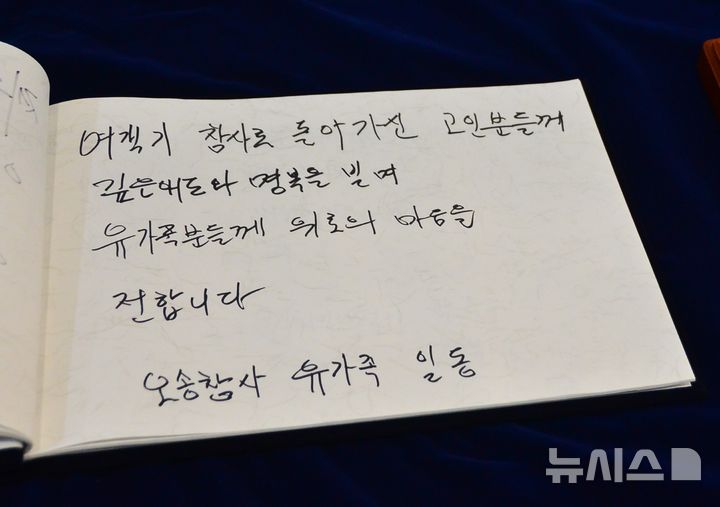 여객기 참사로 돌아가신 고인분들께
깊은애도와 명복을 빌며
유가족분들께 위로의 마음을
전합니다
오송참사 유가족 일동
뉴시스